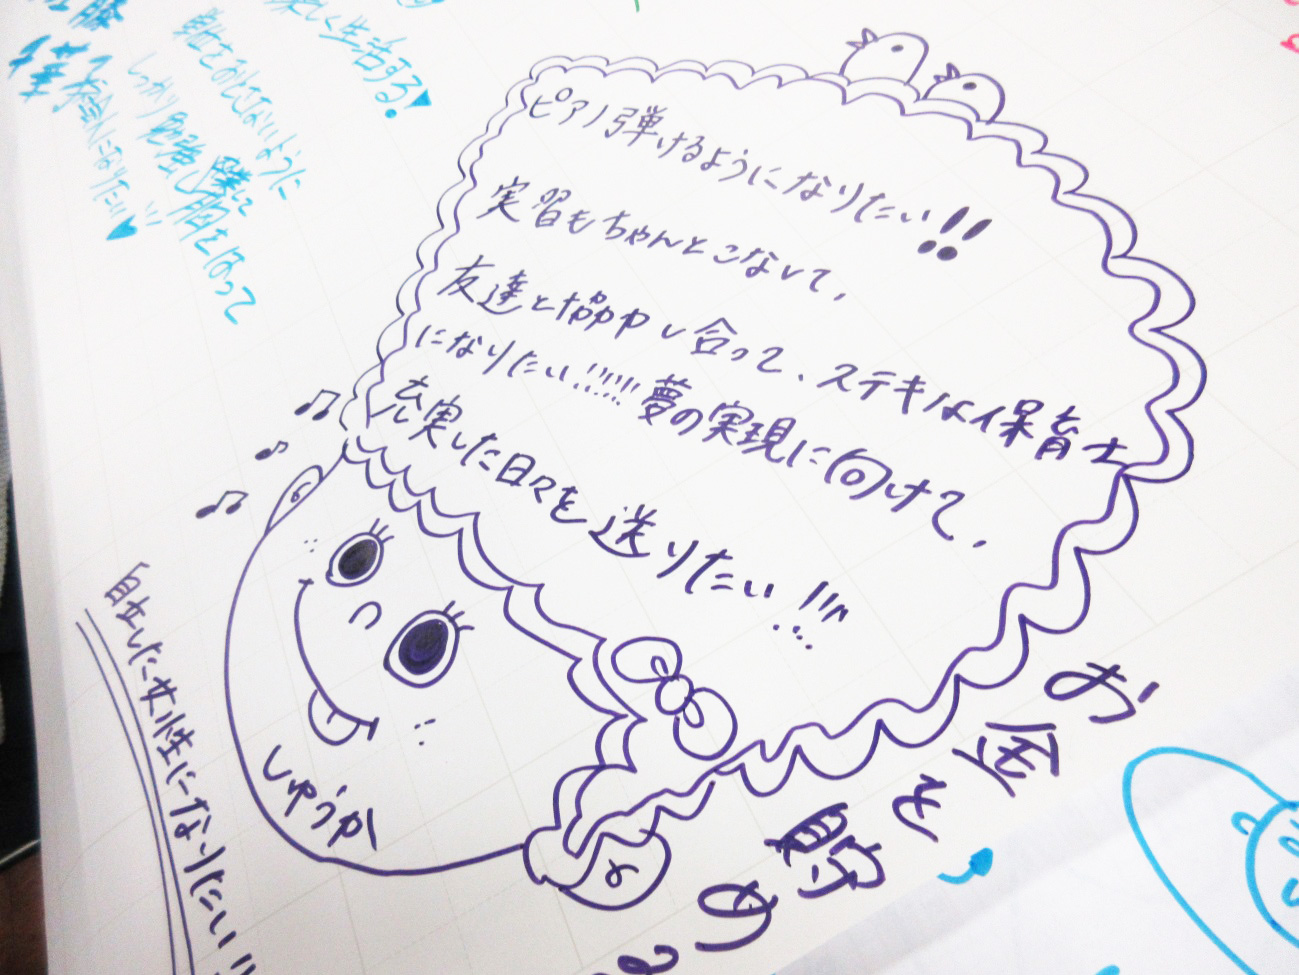 楽しく生活する♥
身体をおとさないように
しっかり勉強し
胸をはって
になりたい!!♥
ピアノ弾けるようになりたい!!
実習もちゃんとこなして、
友達と協力し合って、ステキな保育士
になりたい!!!!!夢の実現に向けて、
充実した日々を送りたい!!!
しゅうか
自立した女性になりたい!!
お金を貯め